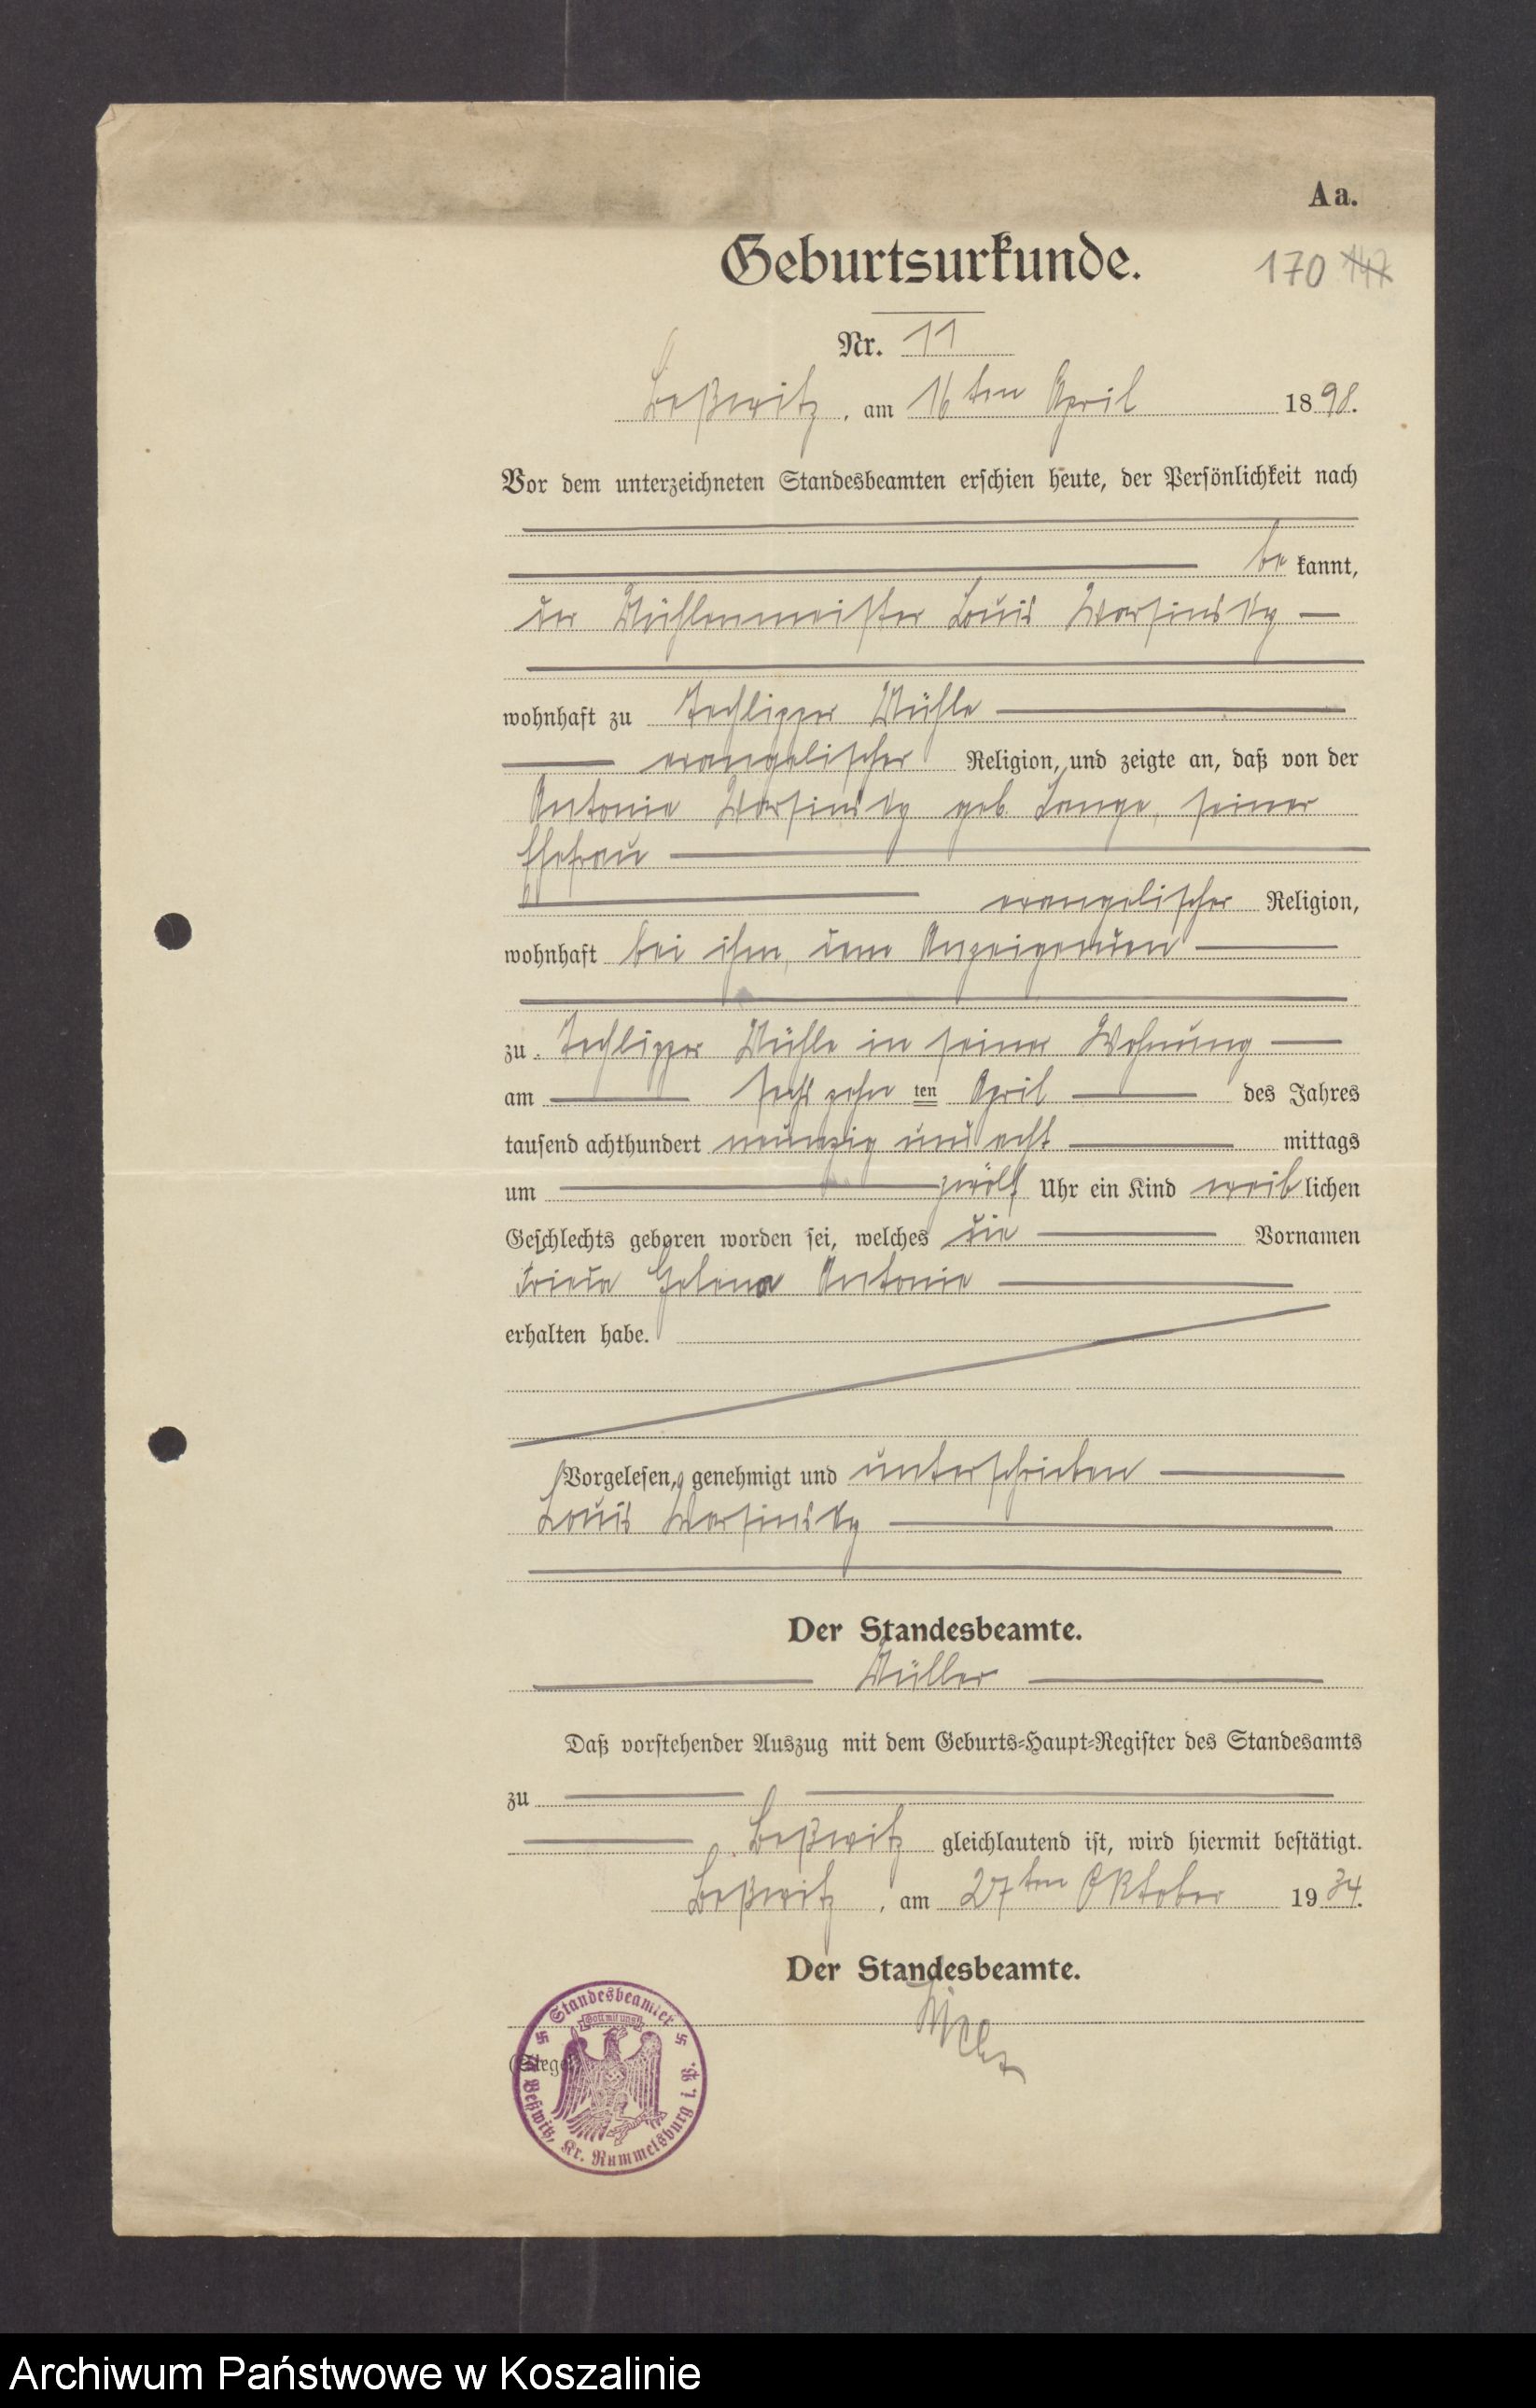 Aa.
Geburtsurkunde.
170 147
Nr. 11
Beßwitz, am 16ten April 1898.
Vor dem unterzeichneten Standesbeamten erschien heute, der Persönlichkeit nach
be kannt,
der Mühlenmeister Louis Warsinsky
wohnhaft zu Techlipper Mühle
evangelischer Religion, und zeigte an, daß von der
Antonie Warsinsky geb. Lange, seiner
Ehefrau
evangelischer Religion,
wohnhaft bei ihm, dem Anzeigenden
zu Techlipper Mühle in seiner Wohnung
am sechszehn ten April des Jahres
tausend achthundert neunzig und acht mittags
um zwölf Uhr ein Kind weiblichen
Geschlechts geboren worden sei, welches die Vornamen
Frieda Helena Antonie
erhalten habe.
Vorgelesen, genehmigt und unterschrieben
Louis Warsinsky
Der Standesbeamte.
Müller
Daß vorstehender Auszug mit dem Geburts-Haupt-Register des Standesamts
zu
Beßwitz gleichlautend ist, wird hiermit bestätigt.
Beßwitz, am 27ten Oktober 1934.
Der Standesbeamte.
(Siegel)
Standesbeamter
Gott mit uns
Beßwitz, Kr. Rummelsburg i. P.
Archiwum Państwowe w Koszalinie